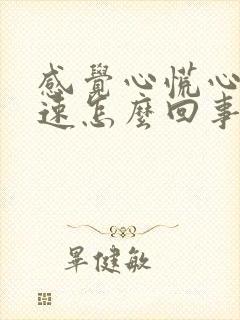 感覺心慌心
速怎麼回事
畢健敏